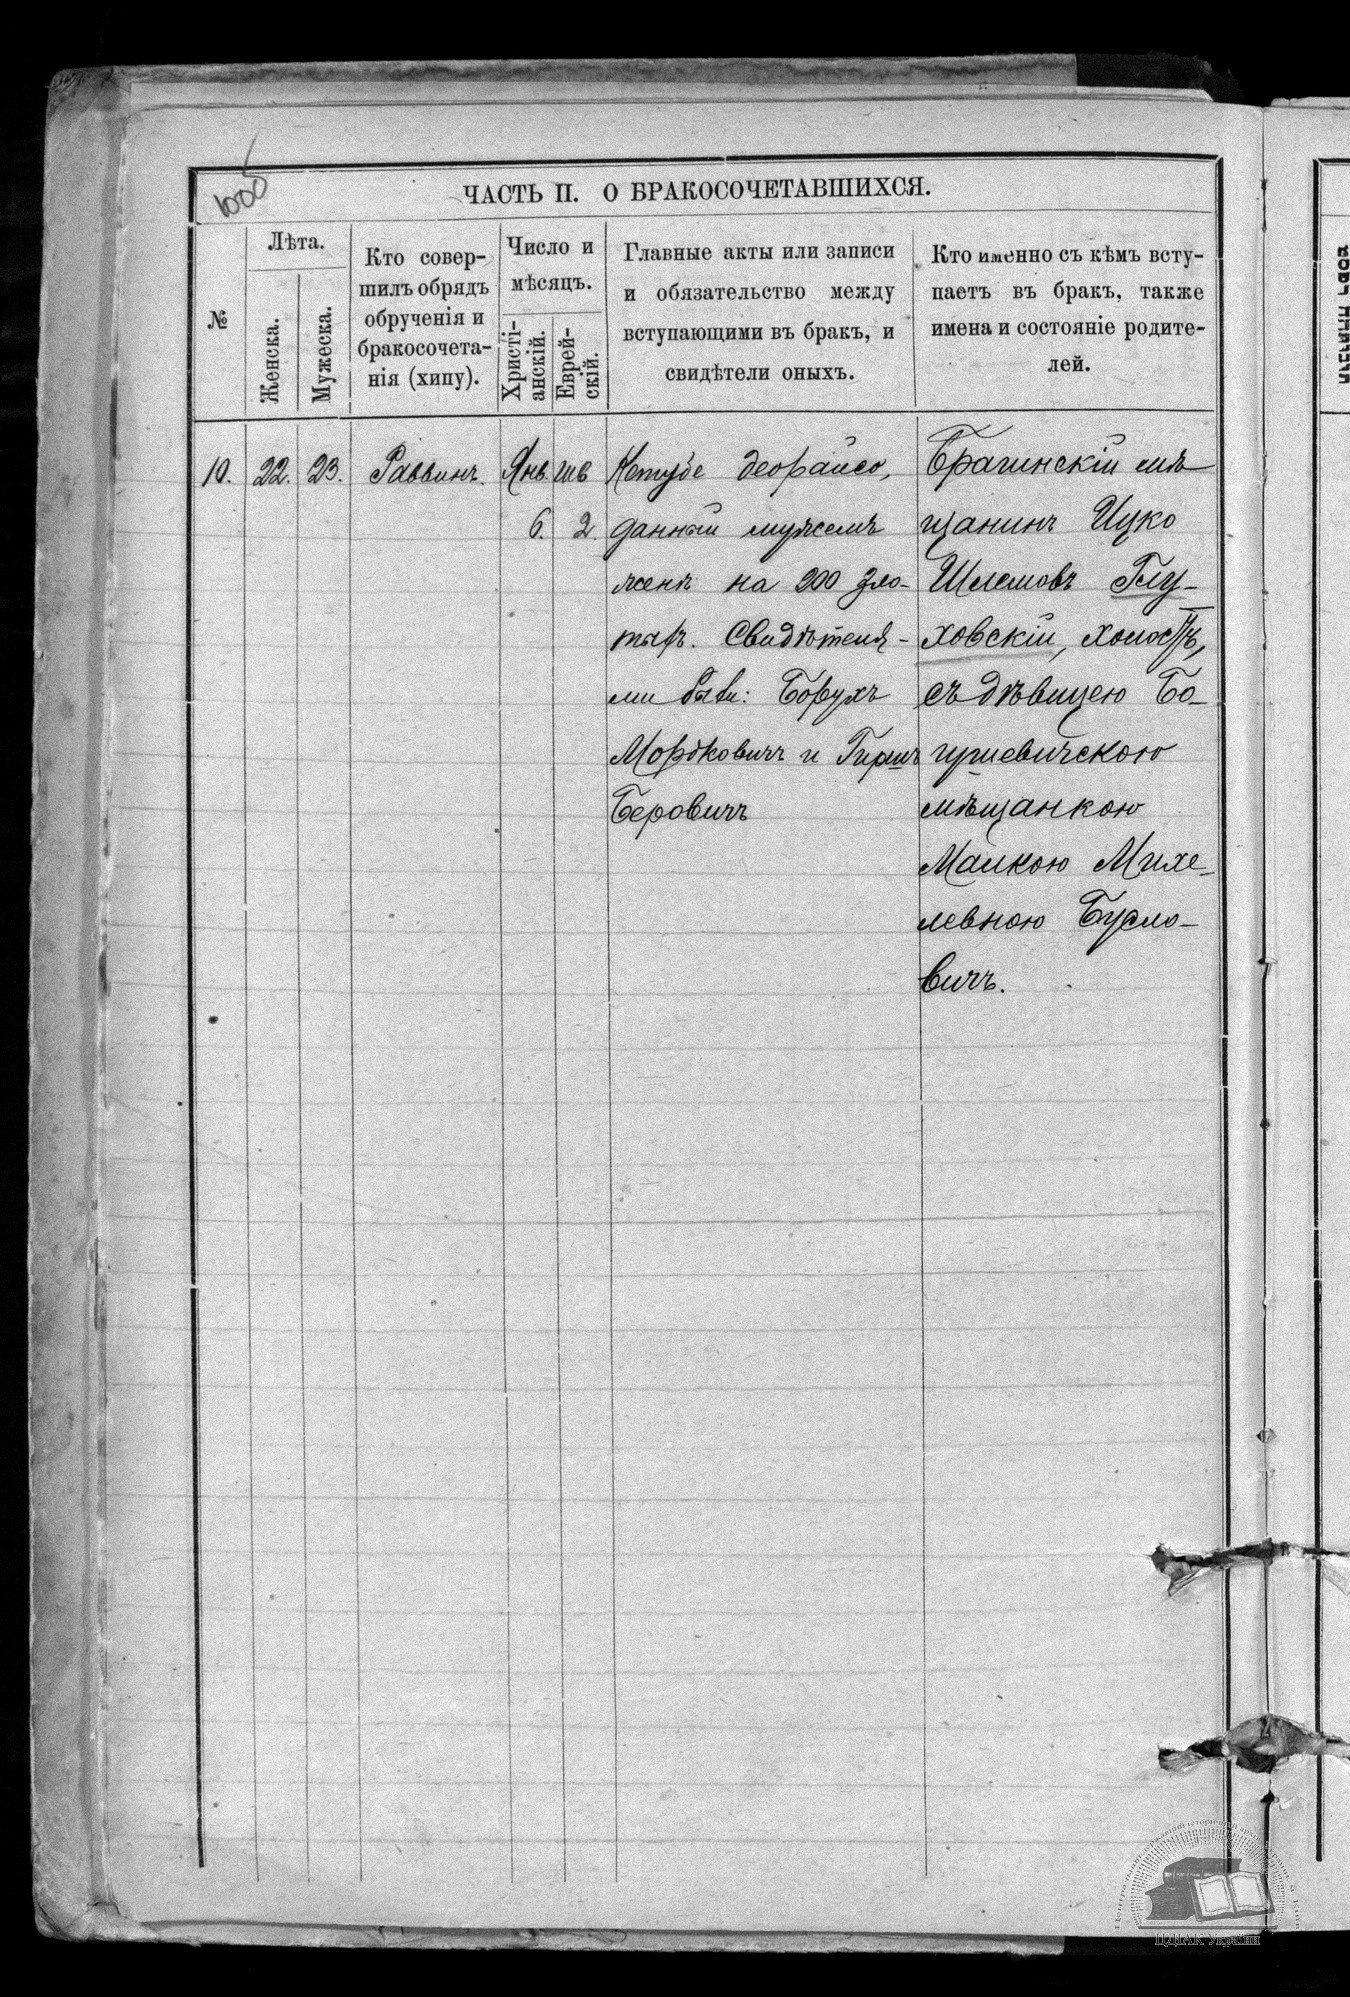 1005
ЧАСТЬ II. О БРАКОСОЧЕТАВШИХСЯ.
№
Лѣта.
Женска.
Мужеска.
Кто совер-
шилъ обрядъ
обрученія и
бракосочета-
нія (хипу).
Число и
мѣсяцъ.
Христі-
анскій.
Еврей-
скій.
Главные акты или записи
и обязательство между
вступающими въ бракъ, и
свидѣтели оныхъ.
Кто именно съ кѣмъ всту-
паетъ въ бракъ, также
имена и состояніе родите-
лей.
10. 22. 23. Раввинъ. Янв. шв
6. 2.
Кетубе деорайсо,
данный мужемъ
женѣ на 200 зло-
тыхъ. Свидѣтеля-
ми были: Борухъ
Мордковичъ и Гиршъ
Беровичъ
Брагинскій мѣ
щанинъ Ицко
Шлемовъ Глу-
ховскій, холостъ,
съ дѣвицею Бо-
гушевичскою
мѣщанкою
Малкою Михе-
левною Бусло-
вичъ.
ЦДІАК України